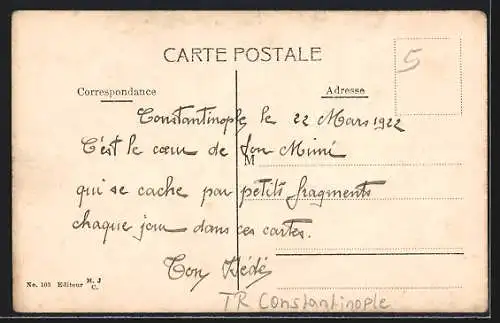 CARTE POSTALE
5
Correspondance
Adresse
Constantinople le 22 Mars 1922
C'est le cœur de ton Mimi
M
qui se cache par petits fragments
chaque jour dans ces cartes.
Ton Dédé
No. 103 Editeur M. J C.
TR Constantinople